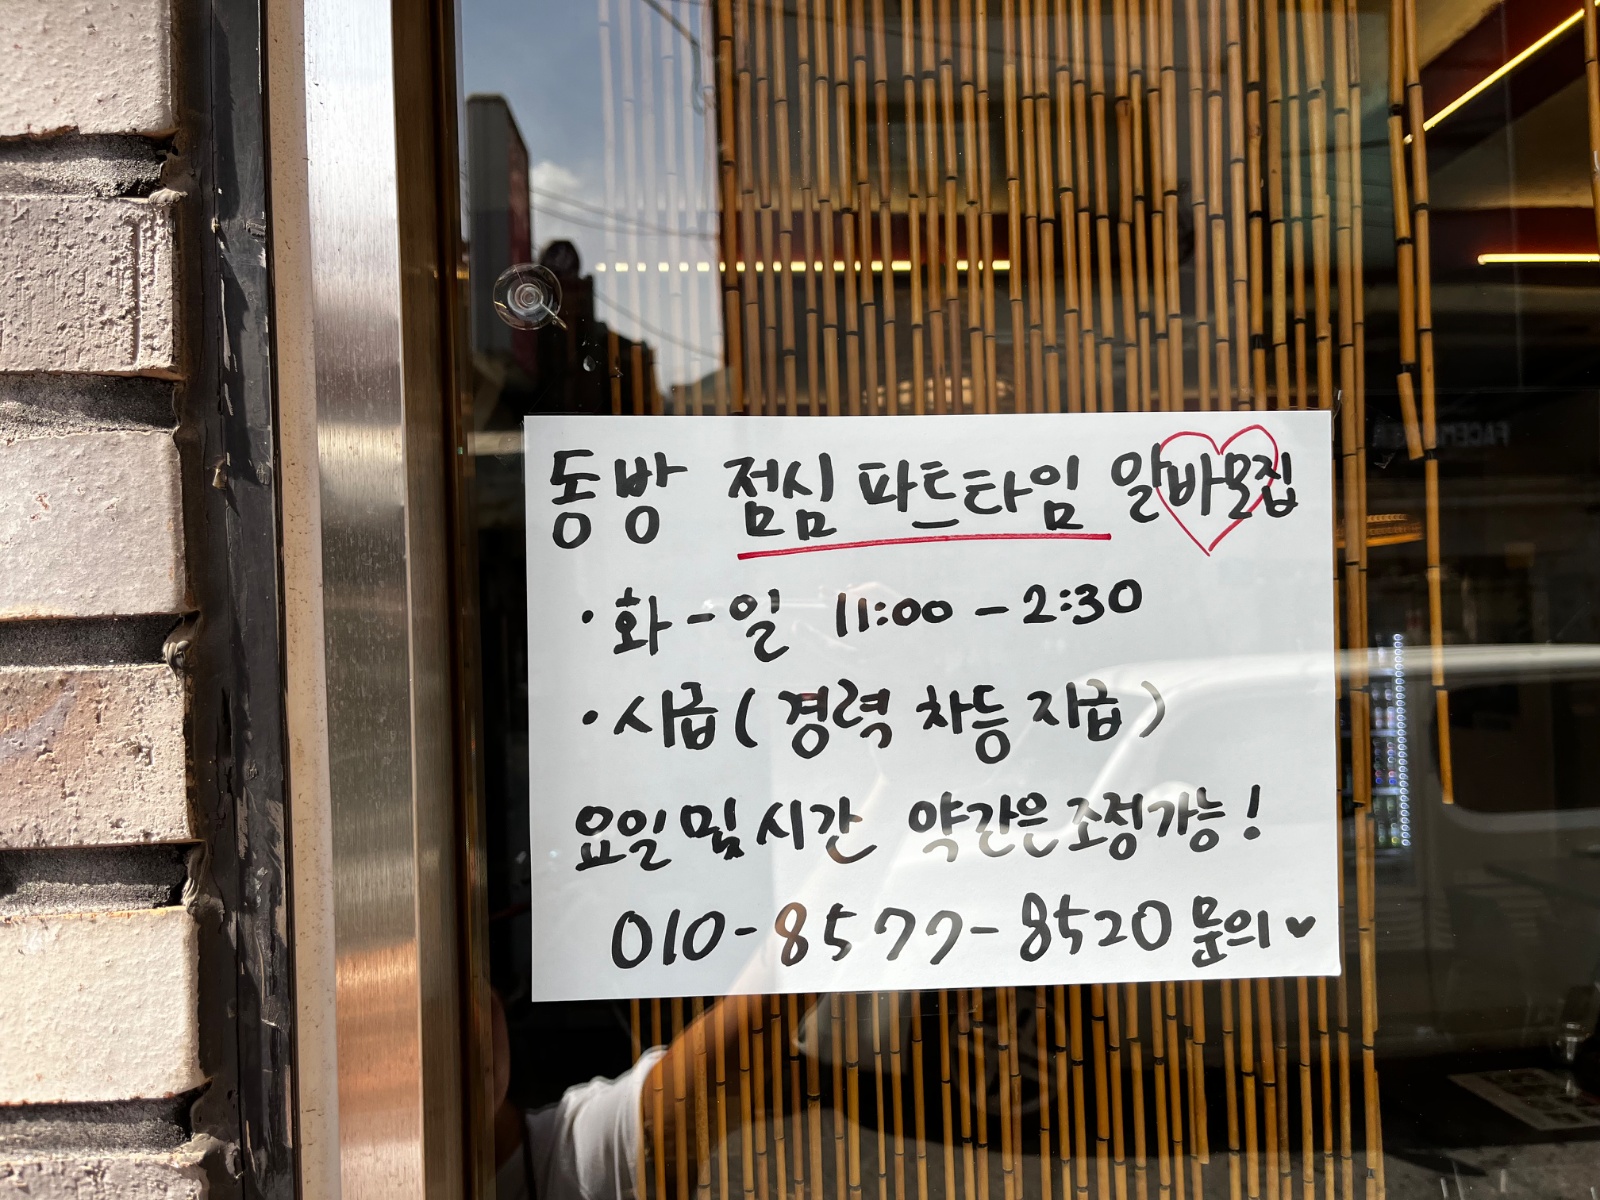 동방 점심 파트타임 알바모집
· 화-일 11:00 - 2:30
· 시급 (경력 차등 지급)
요일 및 시간 약간은 조정가능!
010-8577-8520 문의♥